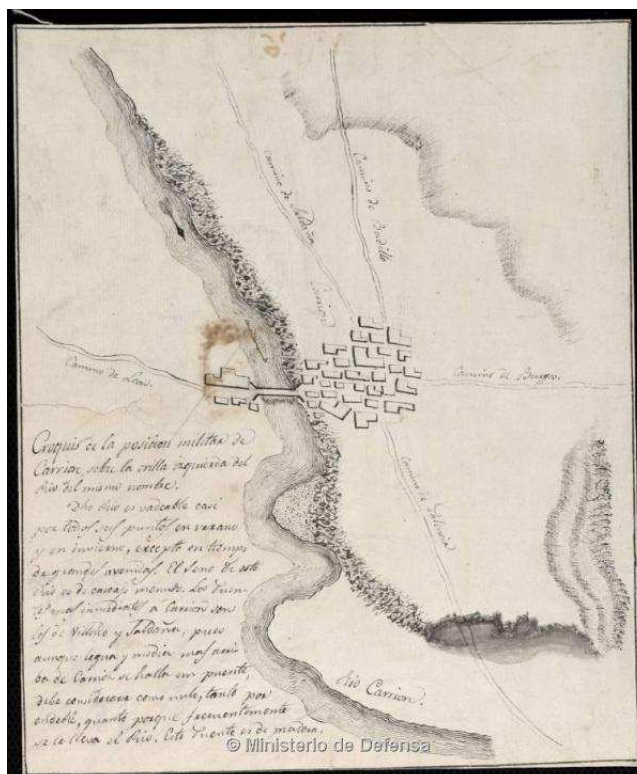 Camino de Saldaña
Camino de Badillo
Carrion
Camino de Leon.
Camino de Burgos.
Camino de
Croquis de la posicion militar de
Carrion, sobre la orilla izquierda del
Rio del mismo nombre.
Dho Rio es vadeable casi
por todos sus puntos en verano
y en invierno, excepto en tiempo
de grandes avenidas. El seno de este
Rio es de cascajo menudo. Los Puen-
tes mas inmediatos a Carrion son
los de Villoldo y Saldaña, pues
aunque legua y media mas arri-
ba de Carrion se halla un puente,
debe considerarse como nulo, tanto por
endeble, quanto porque frecuentemente
se le lleva el Rio. Este Puente es de madera.
Rio Carrion.
© Ministerio de Defensa